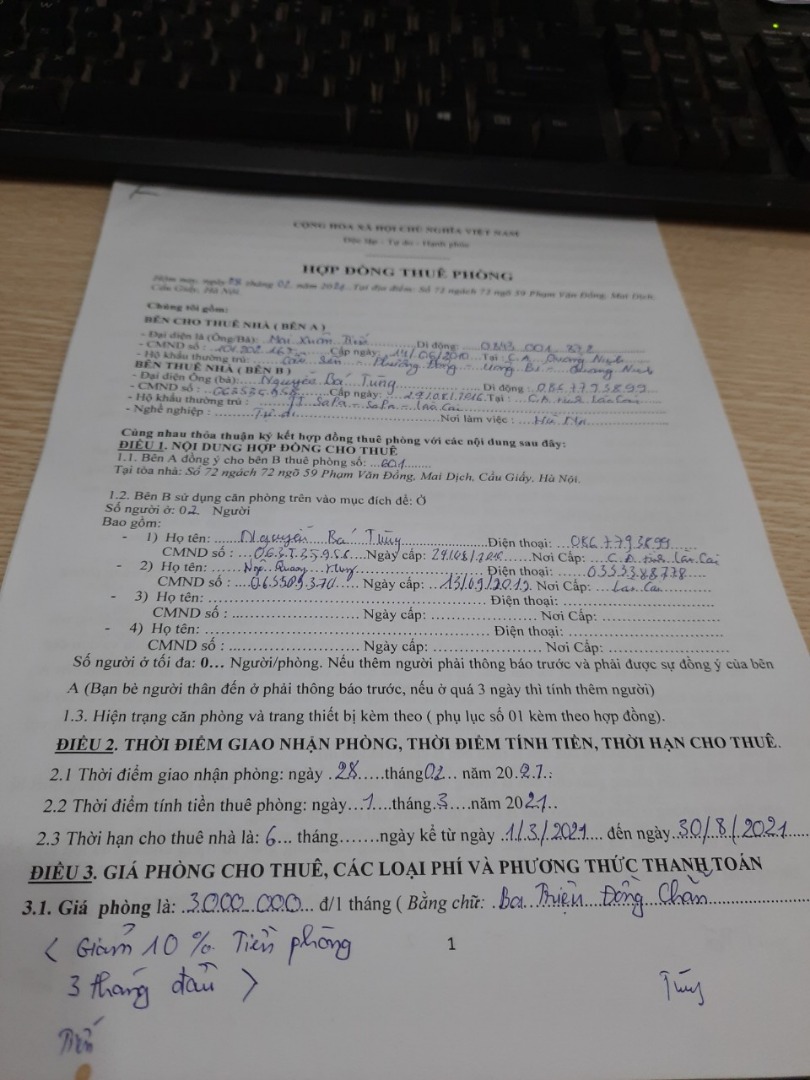 CỘNG HÒA XÃ HỘI CHỦ NGHĨA VIỆT NAM
Độc lập - Tự do - Hạnh phúc
HỢP ĐỒNG THUÊ PHÒNG
Hôm nay, ngày 28 tháng 02 năm 2021. Tại địa điểm: Số 72 ngách 72 ngõ 59 Phạm Văn Đồng, Mai Dịch,
Cầu Giấy, Hà Nội.
Chúng tôi gồm:
BÊN CHO THUÊ NHÀ ( BÊN A )
- Đại diện là (Ông/Bà): Mai Xuân Tiến Di động:
- CMND số : Cấp ngày: 14/06/2010 Tại : C.A Quảng Ninh
- Hộ khẩu thường trú: Phương Đông - Uông Bí - Quảng Ninh
BÊN THUÊ NHÀ ( BÊN B )
- Đại diện Ông (bà): Nguyễn Bá Tùng Di động : 0867793899
- CMND số : Cấp ngày: Tại : C.A tỉnh Lào Cai
- Hộ khẩu thường trú : TT SaPa - SaPa - Lào Cai
- Nghề nghiệp : Tự do Nơi làm việc :
Cùng nhau thỏa thuận ký kết hợp đồng thuê phòng với các nội dung sau đây:
ĐIỀU 1. NỘI DUNG HỢP ĐỒNG CHO THUÊ
1.1. Bên A đồng ý cho bên B thuê phòng số: ...601........
Tại tòa nhà: Số 72 ngách 72 ngõ 59 Phạm Văn Đồng, Mai Dịch, Cầu Giấy, Hà Nội.
1.2. Bên B sử dụng căn phòng trên vào mục đích để: Ở
Số người ở: 02 Người
Bao gồm:
- 1) Họ tên: Nguyễn Bá Tùng Điện thoại: 0867793899
CMND số : Ngày cấp: Nơi Cấp: C.A tỉnh Lào Cai
- 2) Họ tên: Quang Điện thoại: 0333388778
CMND số : 065509370 Ngày cấp: 13/09/2019 Nơi Cấp: Lào Cai
- 3) Họ tên: ................ Điện thoại: ................
CMND số : ................ Ngày cấp: ................ Nơi Cấp: ................
- 4) Họ tên: ................ Điện thoại: ................
CMND số : ................ Ngày cấp: ................ Nơi Cấp: ................
Số người ở tối đa: 0… Người/phòng. Nếu thêm người phải thông báo trước và phải được sự đồng ý của bên
A (Bạn bè người thân đến ở phải thông báo trước, nếu ở quá 3 ngày thì tính thêm người)
1.3. Hiện trạng căn phòng và trang thiết bị kèm theo ( phụ lục số 01 kèm theo hợp đồng).
ĐIỀU 2. THỜI ĐIỂM GIAO NHẬN PHÒNG, THỜI ĐIỂM TÍNH TIỀN, THỜI HẠN CHO THUÊ.
2.1 Thời điểm giao nhận phòng: ngày .28.....tháng 02... năm 20.21..
2.2 Thời điểm tính tiền thuê phòng: ngày...1....tháng.3....năm 2021..
2.3 Thời hạn cho thuê nhà là: 6... tháng.......ngày kể từ ngày .1/3/2021.... đến ngày..30/8/2021......
ĐIỀU 3. GIÁ PHÒNG CHO THUÊ, CÁC LOẠI PHÍ VÀ PHƯƠNG THỨC THANH TOÁN
3.1. Giá phòng là: .3000.000... đ/1 tháng ( Bằng chữ: .Ba Triệu Đồng Chẵn
1
< Giảm 10 % Tiền phòng
3 tháng đầu >
Tùng
Tiến